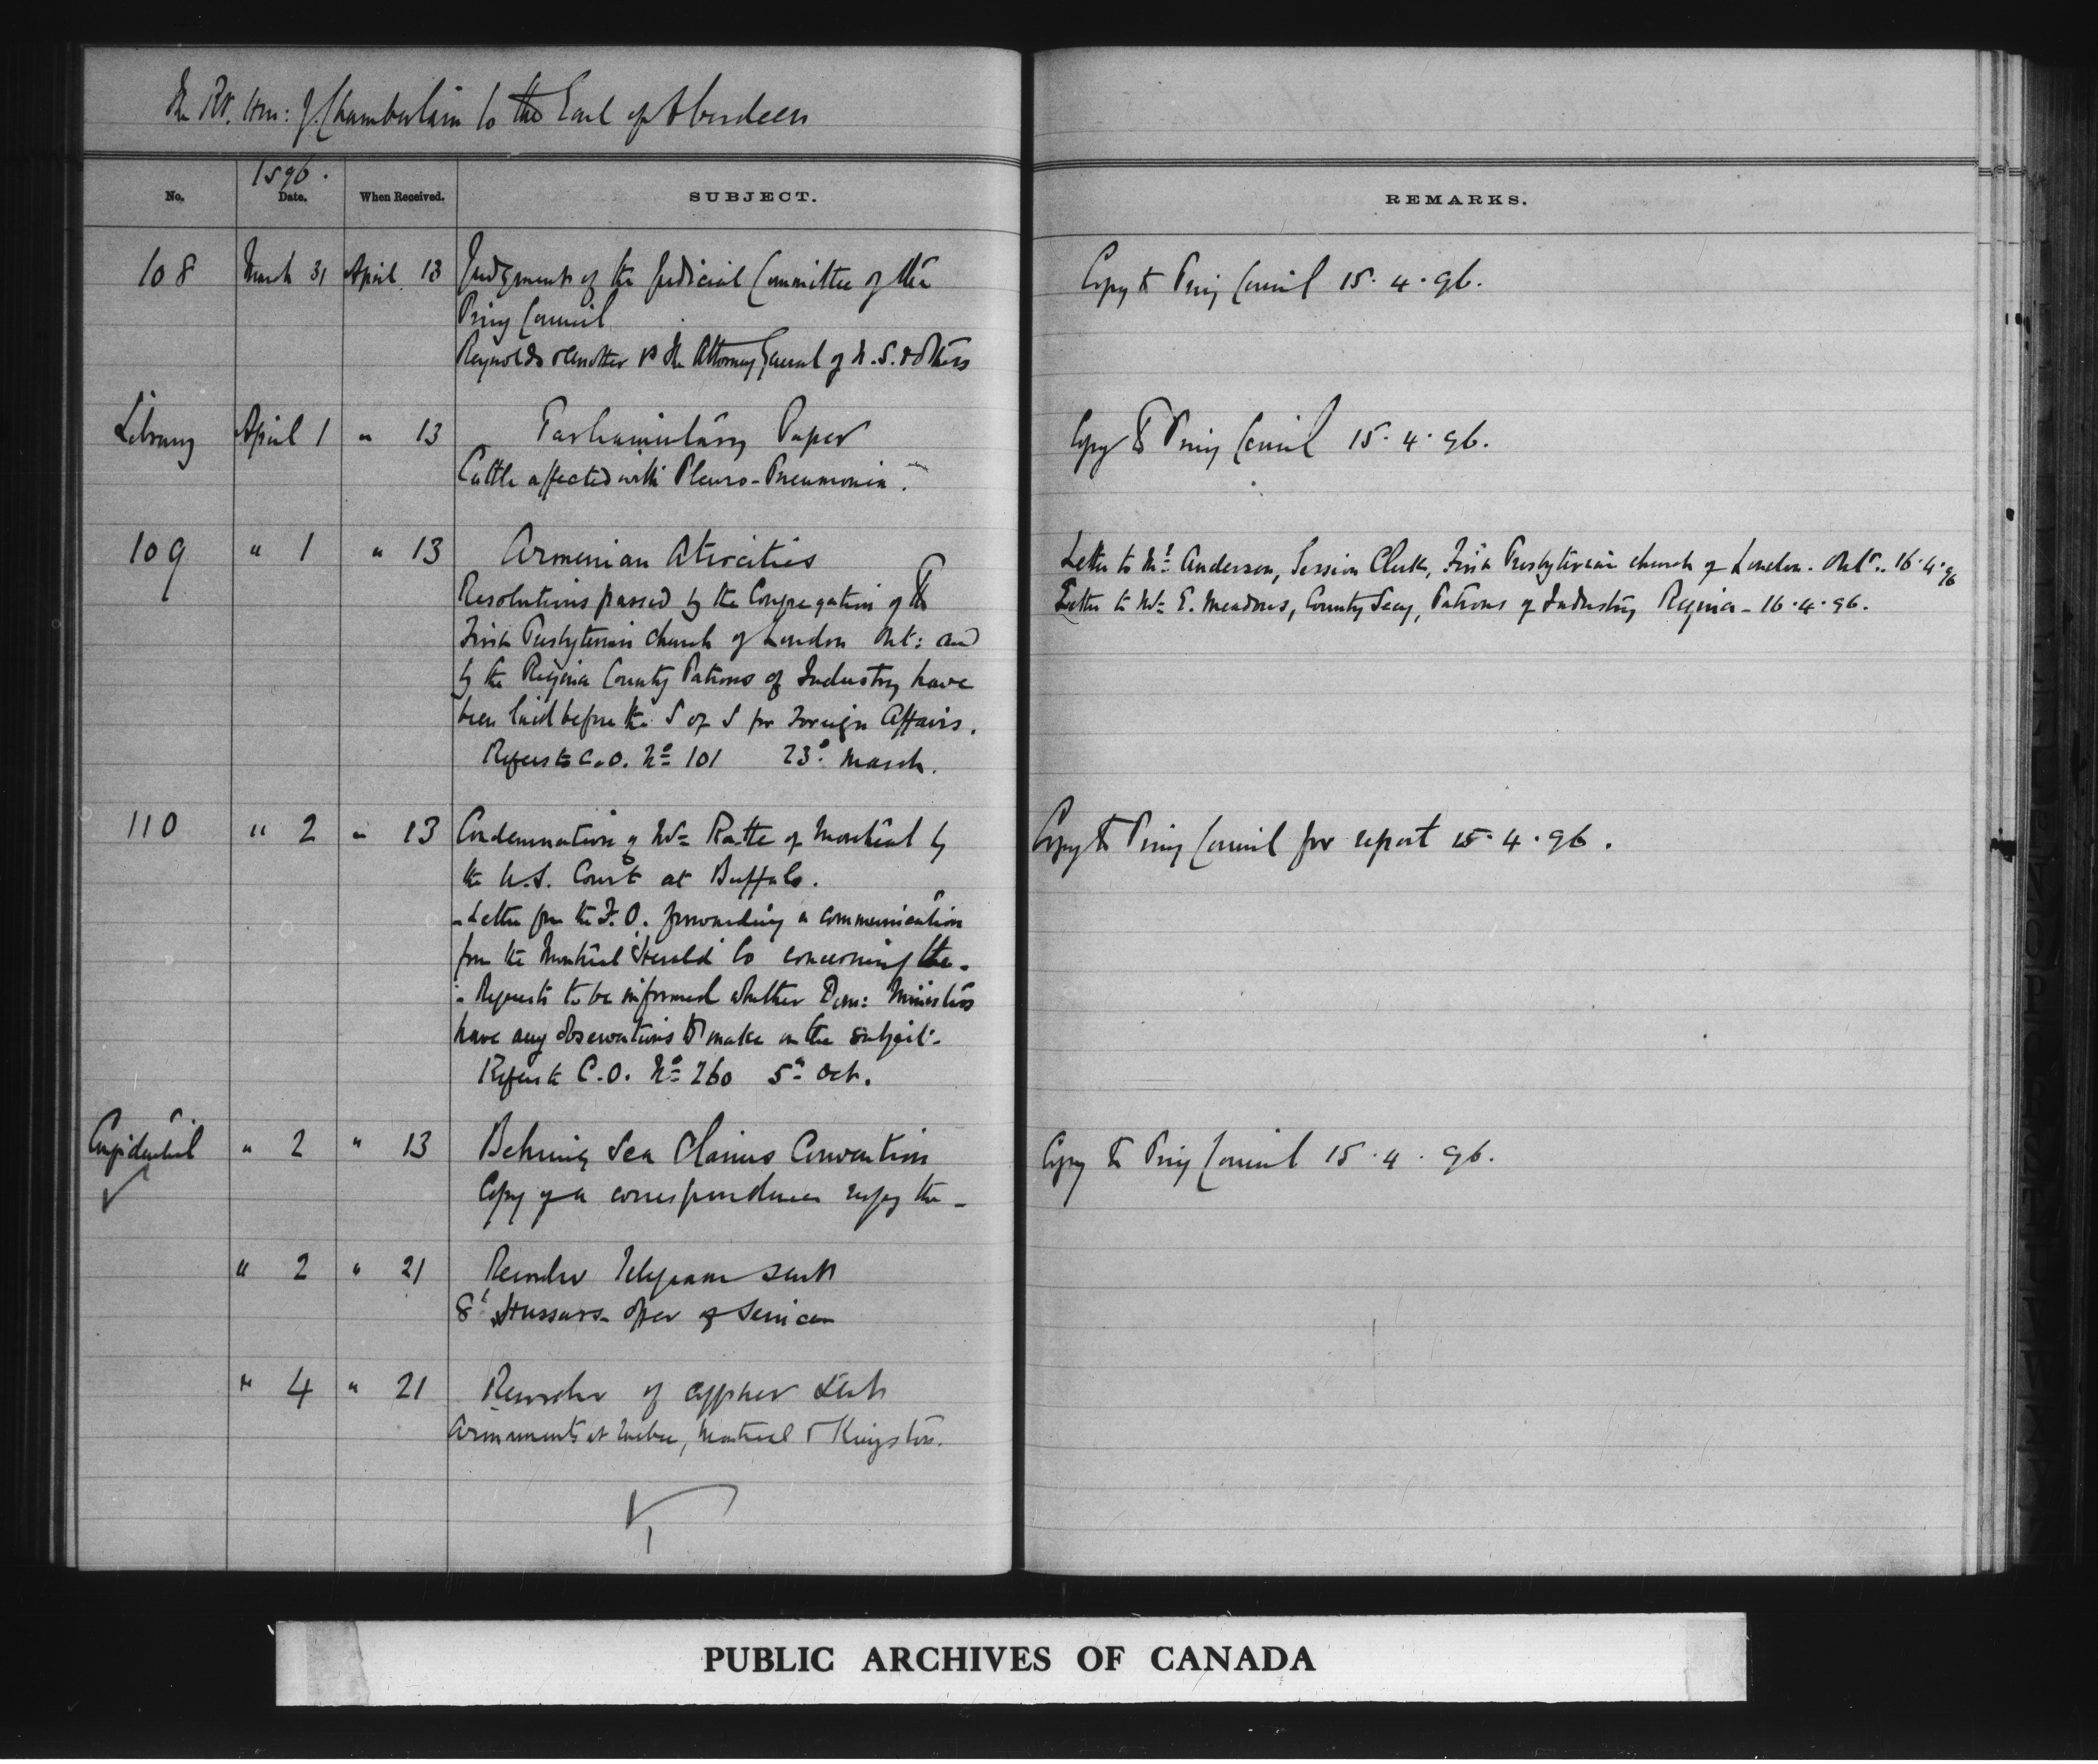 The Rt. Hon: J. Chamberlain to the Earl of Aberdeen
1896.
No. Date. When Received. SUBJECT. REMARKS.
108 March 31 April 13 Judgment of the Judicial Committee of the Copy to Privy Council 15.4.96.
Privy Council
Reynolds & another vs the Attorney General of N.S. & others
Library April 1 " 13 Parliamentary Paper Copy to Privy Council 15.4.96.
Cattle affected with Pleuro-Pneumonia.
109 " 1 " 13 Armenian Atrocities Letter to Mr. Anderson, Session Clerk, First Presbyterian church of London. Ont. 16.4.96
Resolutions passed by the Congregation of the Letter to Mr. E. Meadows, County Secy, Patrons of Industry Regina - 16.4.96.
First Presbyterian church of London Ont: and
by the Regina County Patrons of Industry have
been laid before the S of S for Foreign Affairs.
Refers to C.O. No 101 23d March.
110 " 2 " 13 Condemnation of Mr Ratte of Montreal by Copy to Privy Council for report 15.4.96.
the U.S. Court at Buffalo.
- Letter from the F.O. forwarding a communication
from the Montreal 'Herald' Co concerning the -
- Requests to be informed whether Dom: Ministers
have any observations to make on the subject -
Refers to C.O. No 260 5th Oct.
Confidential " 2 " 13 Behring Sea Claims Convention Copy to Privy Council 15.4.96.
Copy of a correspondence respg the -
" 2 " 21 Recorder Telegram sent
8th Hussars - offer of Services
" 4 " 21 Recorder of cypher sent
Armaments at Quebec, Montreal & Kingston.
PUBLIC ARCHIVES OF CANADA